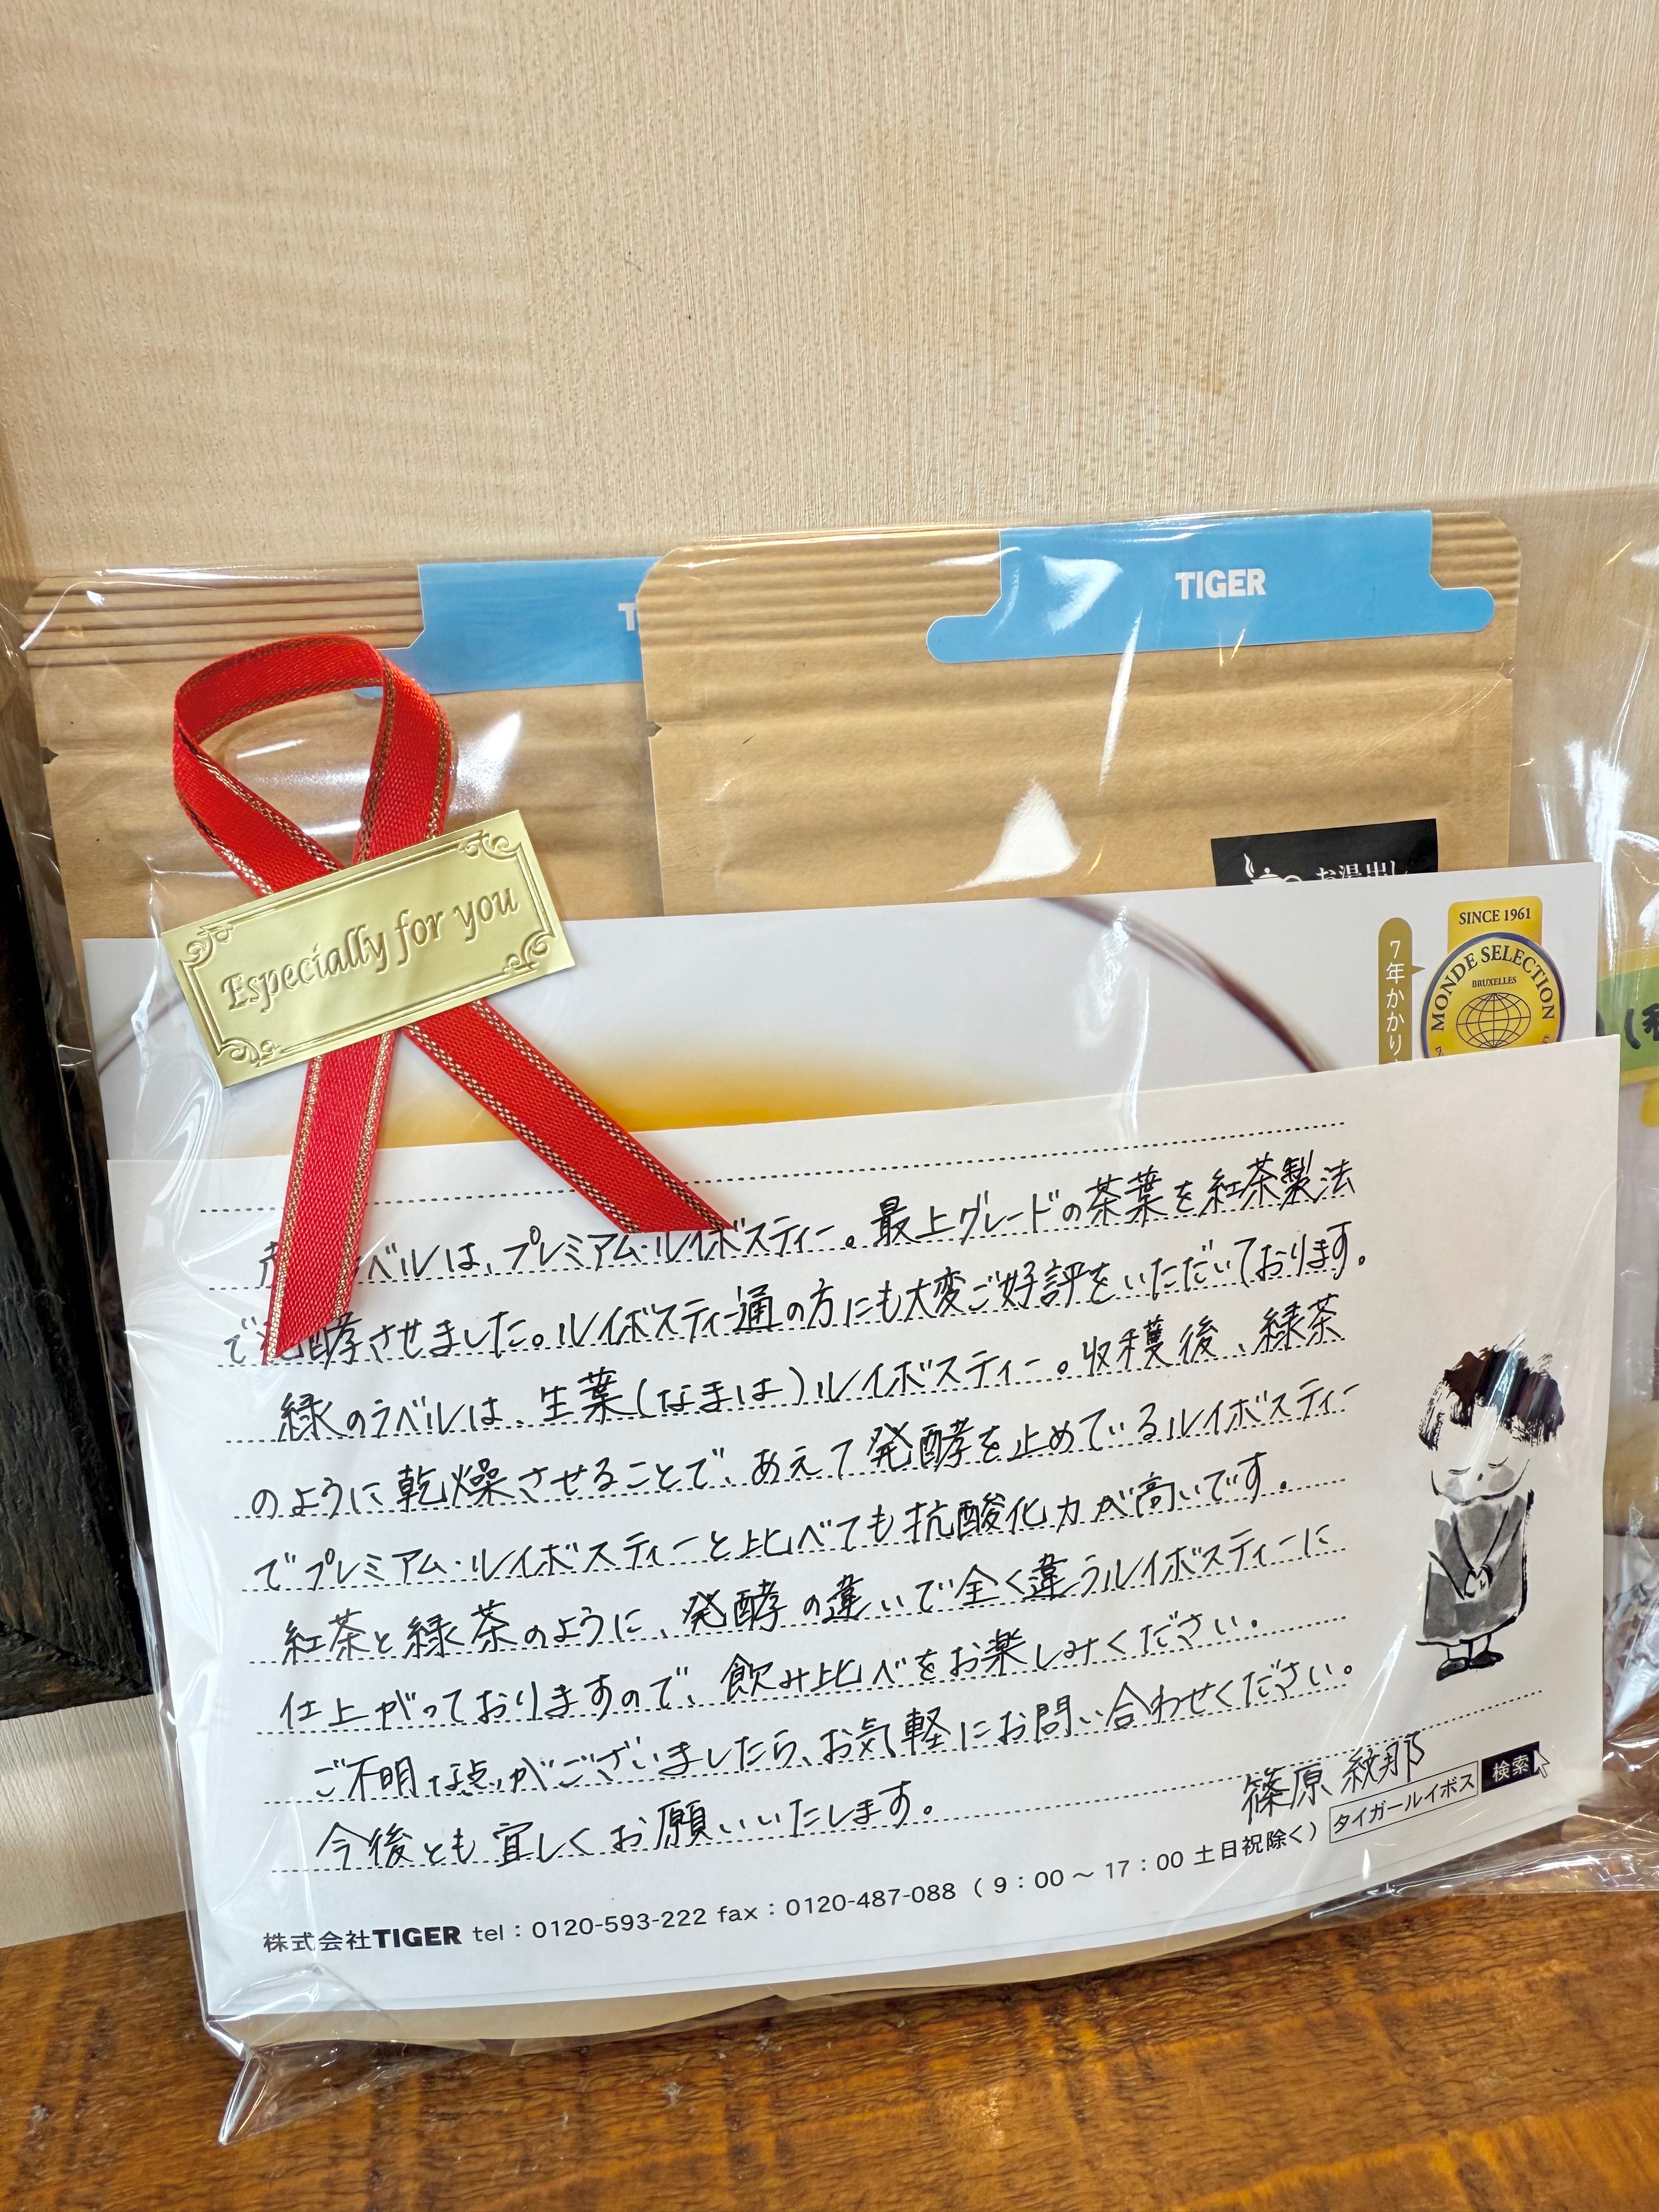 TIGER
お湯出し
Especially for you
SINCE 1961
MONDE SELECTION
BRUXELLES
7年かかり
ラベルは、プレミアム・ルイボスティー。最上グレードの茶葉を紅茶製法
で発酵させました。ルイボスティー通の方にも大変ご好評をいただいております。
緑のラベルは、生葉(なまは)ルイボスティー。収穫後、緑茶
のように乾燥させることで、あえて発酵を止めているルイボスティー
でプレミアム・ルイボスティーと比べても抗酸化力が高いです。
紅茶と緑茶のように、発酵の違いで全く違うルイボスティーに
仕上がっておりますので、飲み比べをお楽しみください。
ご不明な点がございましたら、お気軽にお問い合わせください。
今後とも宜しくお願いいたします。
篠原 紋那
タイガールイボス 検索
株式会社TIGER tel：0120-593-222 fax：0120-487-088（9：00～17：00 土日祝除く）